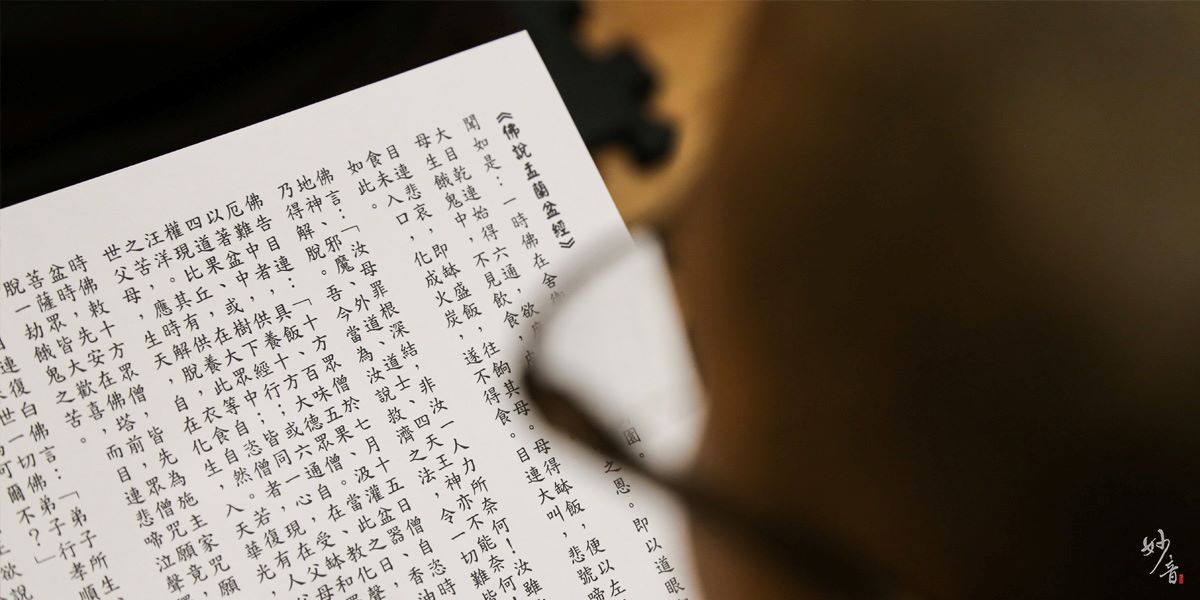 《佛說盂蘭盆經》
聞如是：一時佛在舍衛 園。
大目乾連始得六通，欲度 之恩。即以道眼
母生餓鬼中，不見飲食，皮
目連悲哀，即缽盛飯，往餉其母。母得缽飯，便以左
食未入口，化成火炭，遂不得食。目連大叫，悲號啼
如此。
佛言：「汝母罪根深結，非汝一人力所奈何！汝雖
地神、邪魔、外道、道士、四天王神亦不能奈何
乃得解脫。吾今當為汝說救濟之法，令一切難皆
佛告目連：「十方眾僧於七月十五日僧自恣時
厄難中者，具飯、百味五果、汲灌盆器、香油
以著盆中，供養十方大德眾僧。當此之日，
四道果、或在樹下經行；或六通自在、教化聲
權現比丘，在大眾中，皆同一心，受缽和
汪洋。其有供養此等自恣僧者，現在父母
之苦，應時解脫，衣食自然。若復有人父
世父母，生天，自在化生，入天華光
時佛敕十方眾僧，皆先為施主家咒願
盆時，先安在佛塔前，眾僧咒願竟
菩薩眾皆大歡喜，而目連悲啼泣聲
脫一劫餓鬼之苦。
目連復白佛言：「弟子所生
世一切佛弟子行孝順
可爾不？」
欲說
妙音